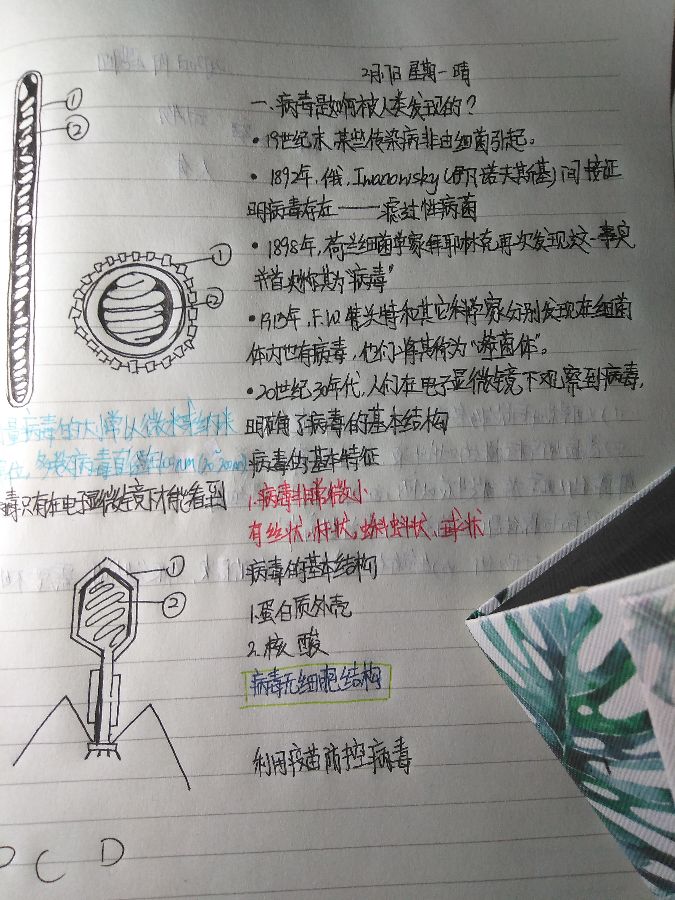 2月17日 星期一 晴
一、病毒是如何被人类发现的？
• 19世纪末，某些传染病非由细菌引起。
• 1892年，俄，Iwanowsky(伊凡诺夫斯基)间接证
明病毒存在——滤过性病菌
• 1898年，荷兰细菌学家拜耶林克再次发现这一事实
并首次称其为"病毒"
• 1915年，F.W.特关特和其它科学家分别发现在细菌
体内也有病毒，他们将其称为"噬菌体"。
• 20世纪30年代，人们在电子显微镜下观察到病毒，
明确了病毒的基本结构
病毒的基本特征
1.病毒非常微小
有丝状，杆状，蝌蚪状，球状
病毒的基本结构
1.蛋白质外壳
2.核酸
病毒无细胞结构
利用疫苗防控病毒
①
②
①
②
量病毒的大小常以微米或纳米
多数病毒直径在
毒只有在电子显微镜下才能看到
①
②
C D